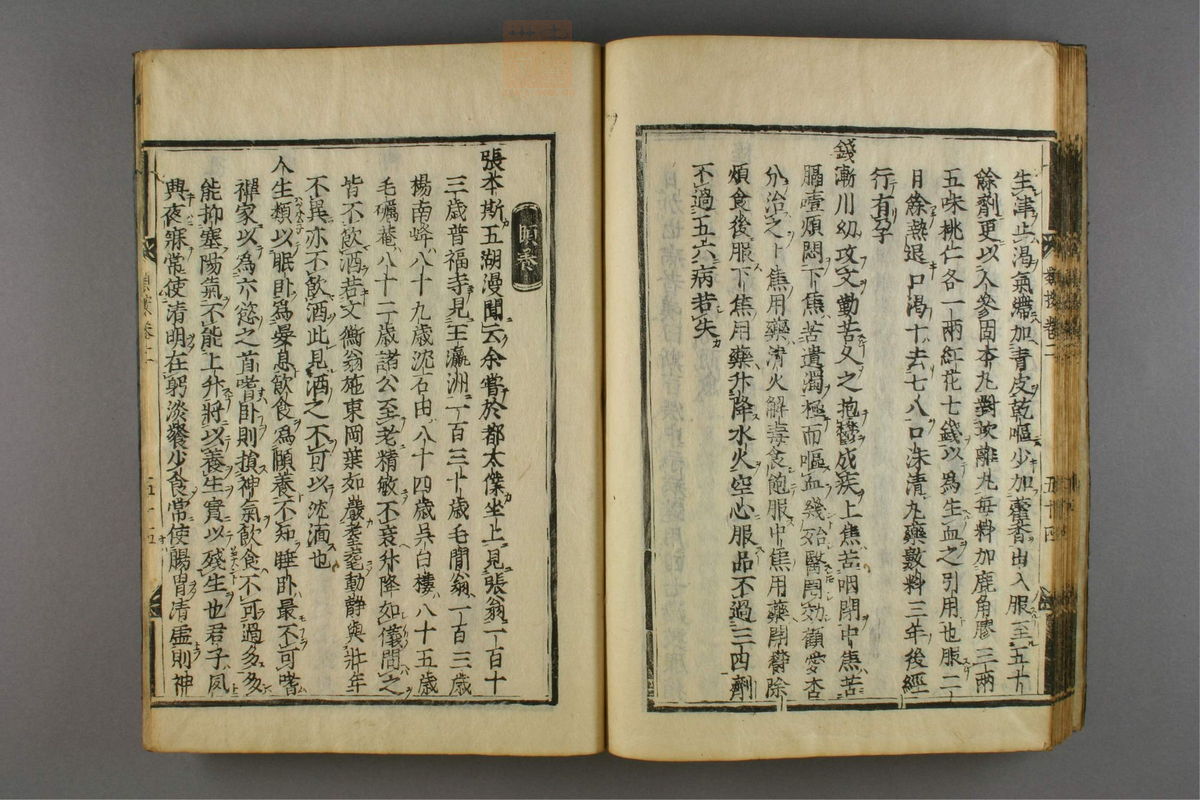 生津止渴氣滯加青皮乾嘔少加藿香出入服至五十
餘劑更以人參固本丸對坎離丸每料加鹿角膠三兩
五味桃仁各一兩紅花七錢以為生血之引用也服二
月餘熱退口渴十去七八口洙清丸藥數料三年後經
行有子
錢漸川幼攻文勤苦久之抱鬱成疾上焦苦咽閉中焦苦
膈噎煩悶下焦苦遺濁極而嘔血幾殆醫罔効顧愛杏
分治之上焦用藥清火解毒食飽服中焦用藥開鬱除
煩食後服下焦用藥升降水火空心服品不過三四劑
不過五六病若失
頤養
張本斯五湖漫聞云余嘗於都太僕坐上見張翁一百十
三歲普福寺見王瀛洲一百三十歲毛間翁一百三歲
楊南峰八十九歲沈石田八十四歲吳白樓八十五歲
毛礪菴八十二歲諸公至老精敏不衰升降如儀問之
皆不飲酒若文衡翁施東岡葉如巖耄耋動靜與壯年
不異亦不飲酒此見酒之不可以沈湎也
人生類以眠臥為晏息飲食為頤養不知睡臥最不可嗜
禪家以為六慾之首嗜臥則損神氣飲食不可過多多
能抑塞陽氣不能上升將以養生實以殘生也君子夙
興夜寐常使清明在躬淡餐少食常使腸胃清虛則神
類案卷二
五十四
五十五